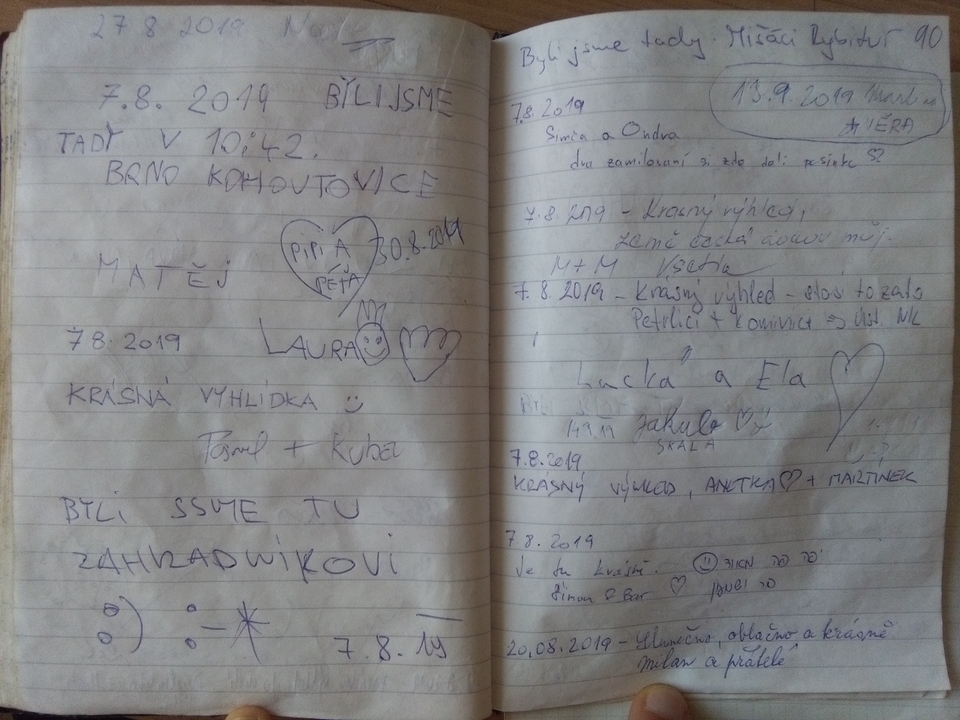 27 8 2019
7.8. 2019 BYLI JSME
TADY V 10:42.
BRNO KOHOUTOVICE
MATĚJ
PIPI A
PÉŤA
30.8.2019
7 8. 2019
LAURA
KRÁSNÁ VYHLÍDKA
+ Kuba
BYLI SSME TU
ZAHRADNÍKOVI
:) :-*
7.8.19
Byli jsme tady. Mišáci Rybitví 90
13.9.2019 Martin
A VĚRA
7.8.2019
Simča a Ondra
dva zamilovaní si zde dali pusinku
7.8 2019 - Krásný výhled,
země česká domov můj.
M+M Vsetín
7.8.2019 - Krásný výhled - stálo to zato
Petrlíci +
Lucka a Ela
Jakub
SKÁLA
7.8.2019
KRÁSNÝ VÝHLED, ANETKA + MARTÍNEK
7.8.2019
Je tu krásně.
Šimon
20.08.2019 - Slunečno, oblačno a krásně
Milan a přátelé